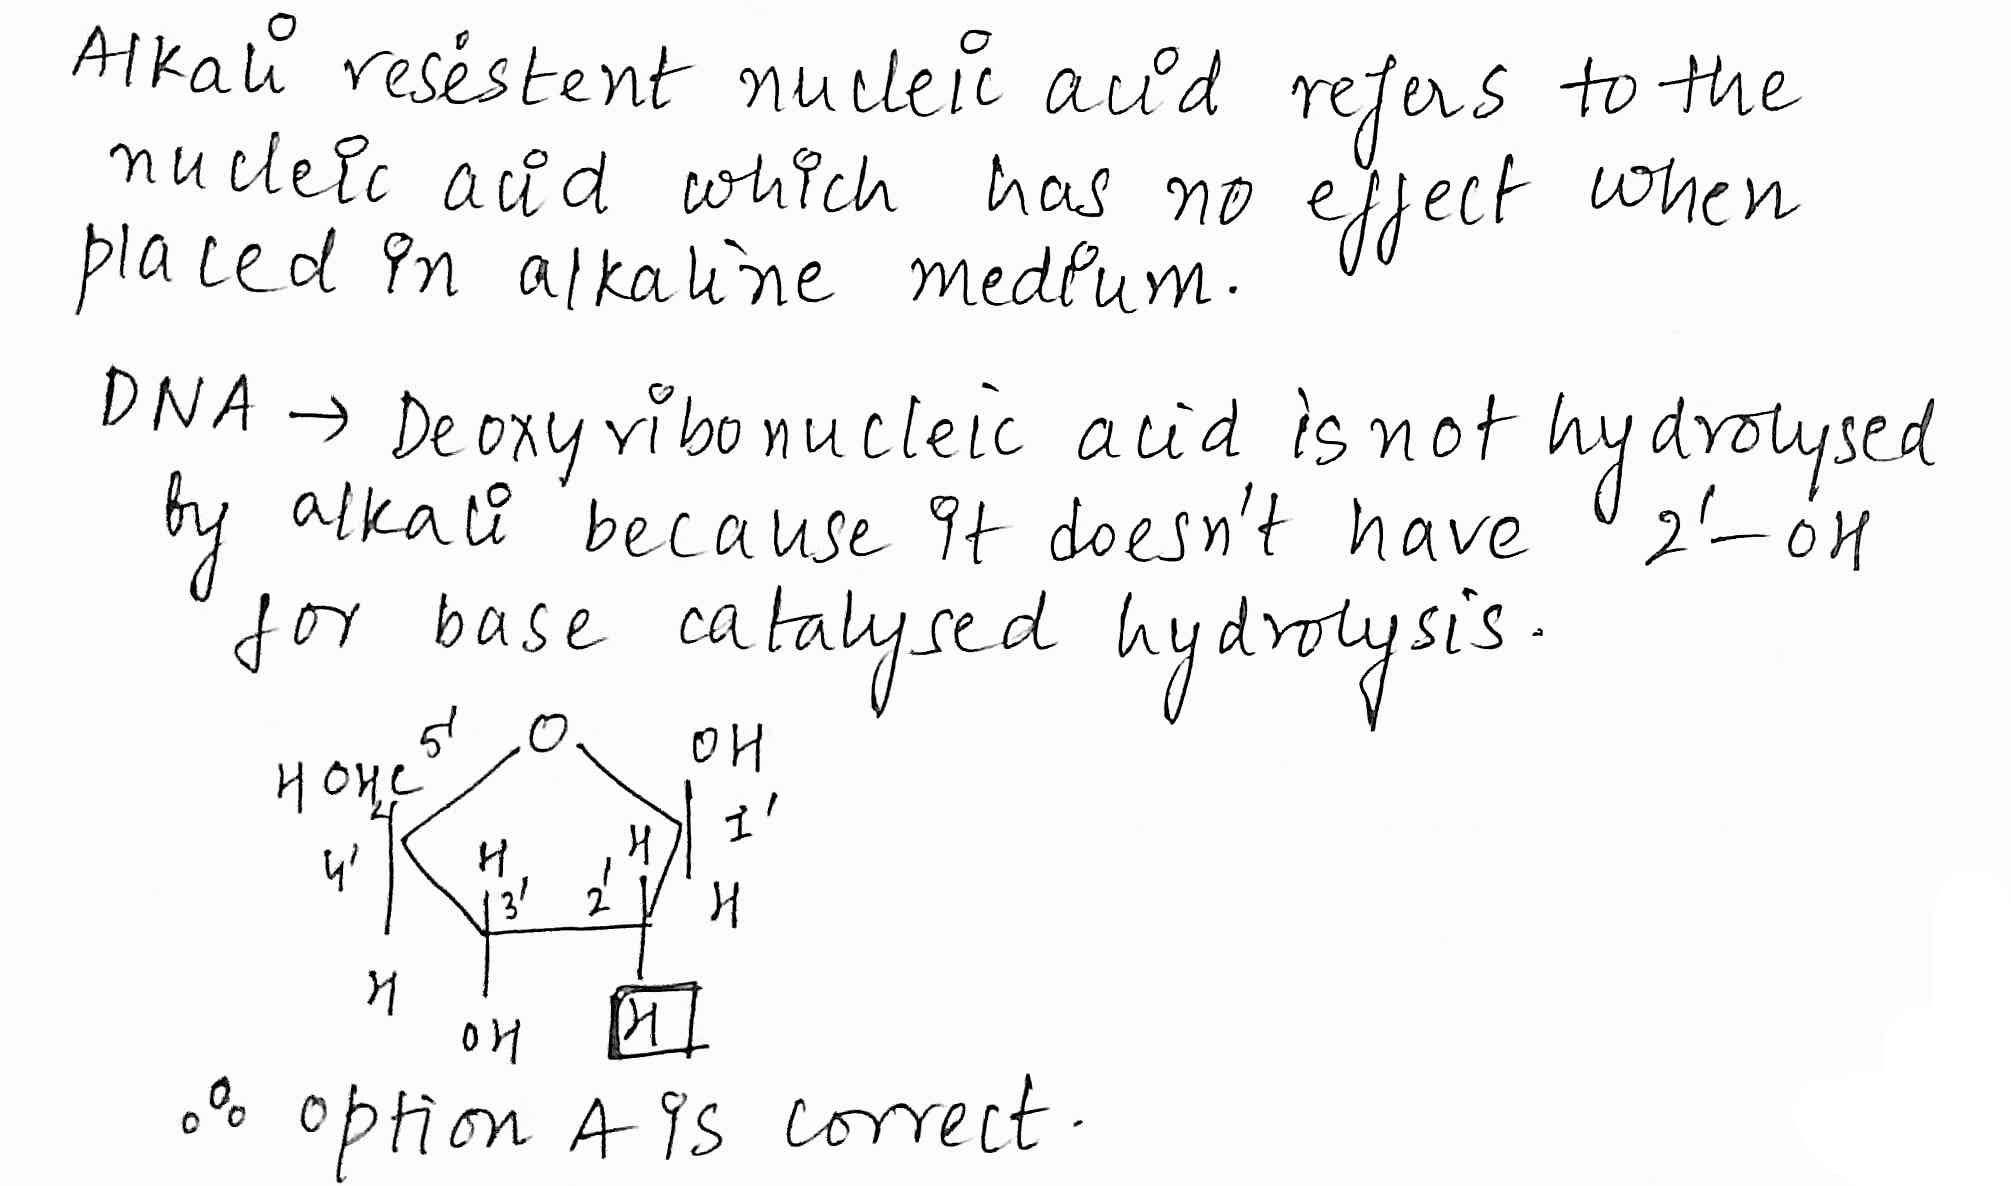 Alkali resistent nucleic acid refers to the
nucleic acid which has no effect when
placed in alkaline medium.
DNA → Deoxyribonucleic acid is not hydrolysed
by alkali because it doesn't have 2'-OH
for base catalysed hydrolysis.
5' O OH
HOH₂C
1'
4' H H
3' 2' H
H
OH H
∴ option A is correct.